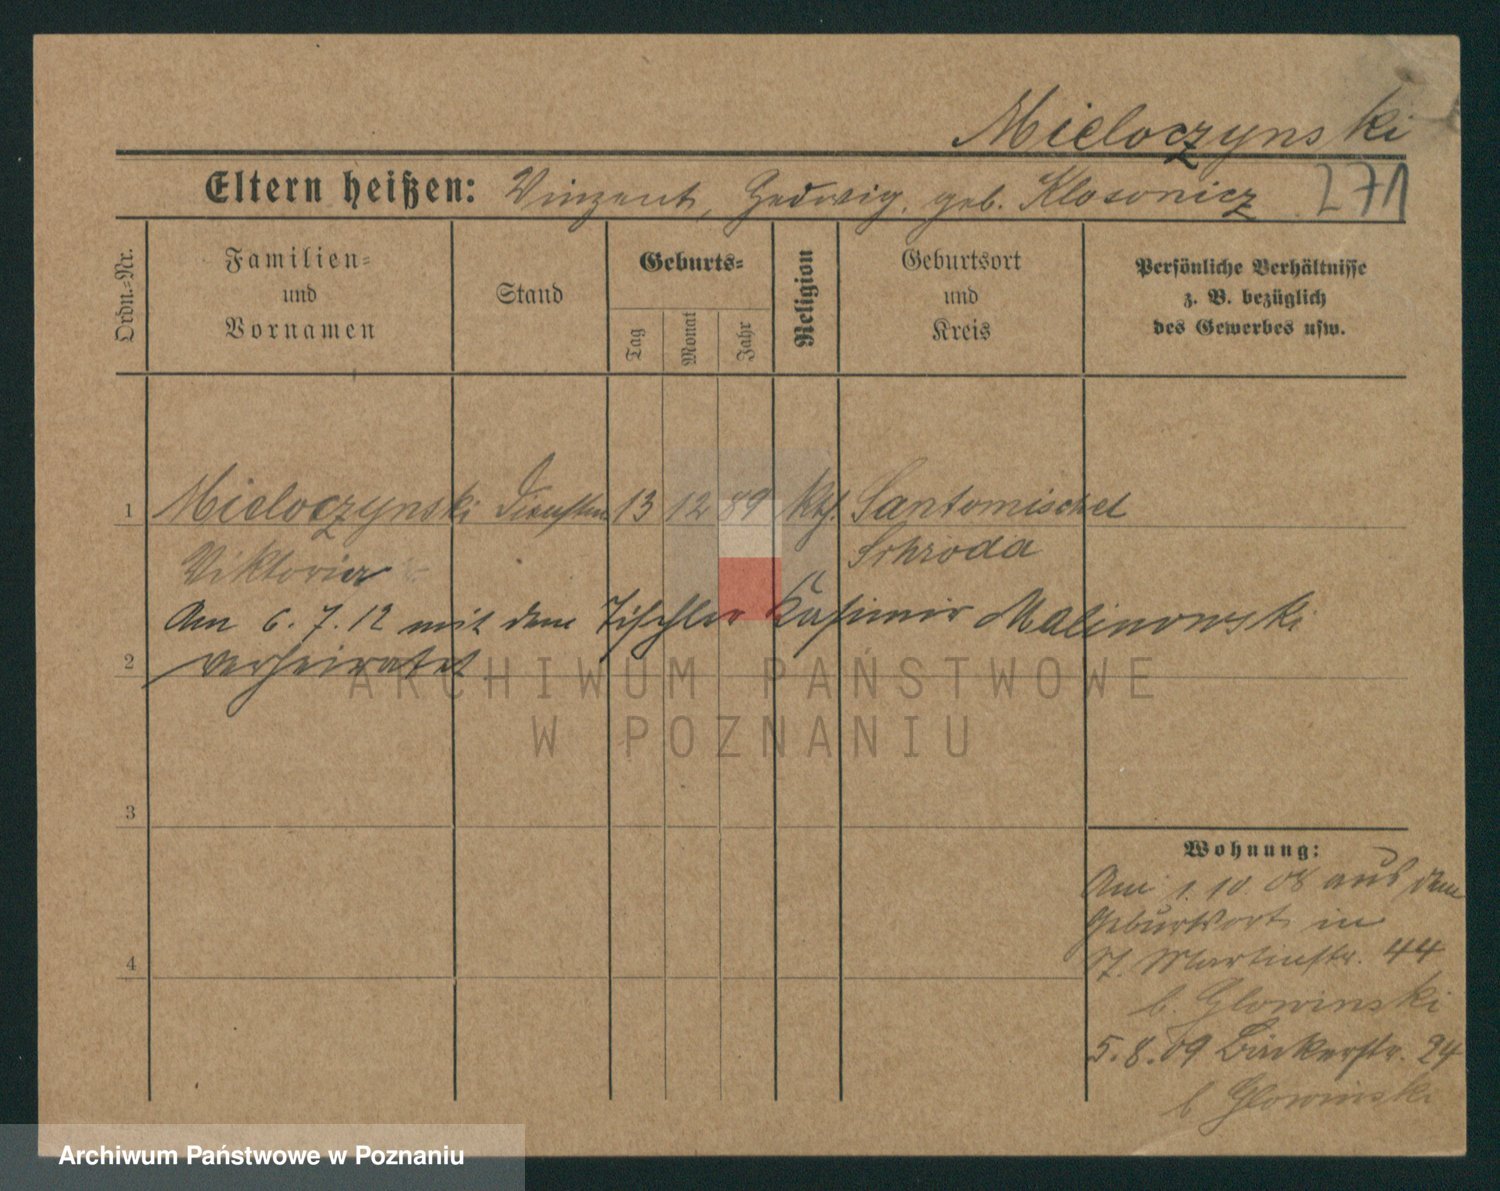 Mieloczynski
Eltern heißen: Vinzent, Hedwig, geb. Klosowicz 271
Ordn.-Nr.
Familien-
und
Vornamen
Stand
Geburts-
Tag
Monat
Jahr
Religion
Geburtsort
und
Kreis
Persönliche Verhältnisse
z. B. bezüglich
des Gewerbes usw.
1 Mieloczynski 13 12 89 kth. Santomischel
Viktoria Schroda
Am 6.7.12 mit dem Tischler Kasimir Malinowski
2 verheiratet
ARCHIWUM PAŃSTWOWE
W POZNANIU
3
Wohnung:
Am 1.10 08 aus dem
Geburtsort in
4 St. Martinstr. 44
b. Glowinski
5.8.09 Bäckerstr. 24
b Glowinski
Archiwum Państwowe w Poznaniu